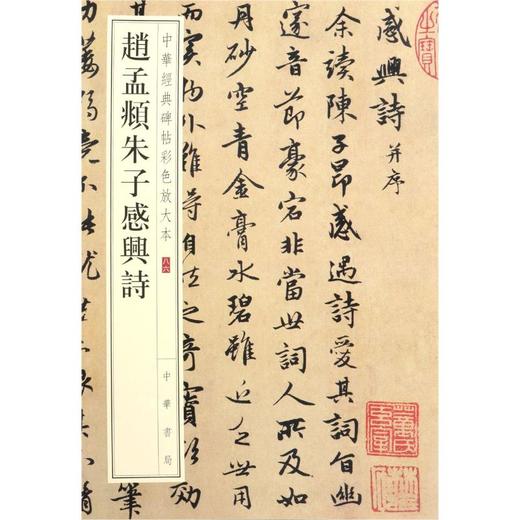 感興詩 并序
余讀陳子昂感遇詩愛其詞旨幽
邃音節豪宕非當世詞人所及如
丹砂空青金膏水碧雖近乏世用
而實物外難得自然之奇寶欲效
筆
中華經典碑帖彩色放大本 八六
中華書局
趙孟頫朱子感興詩
竟不